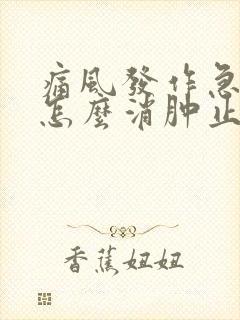 痛風發作急
怎麼消肿止
香蕉妞妞